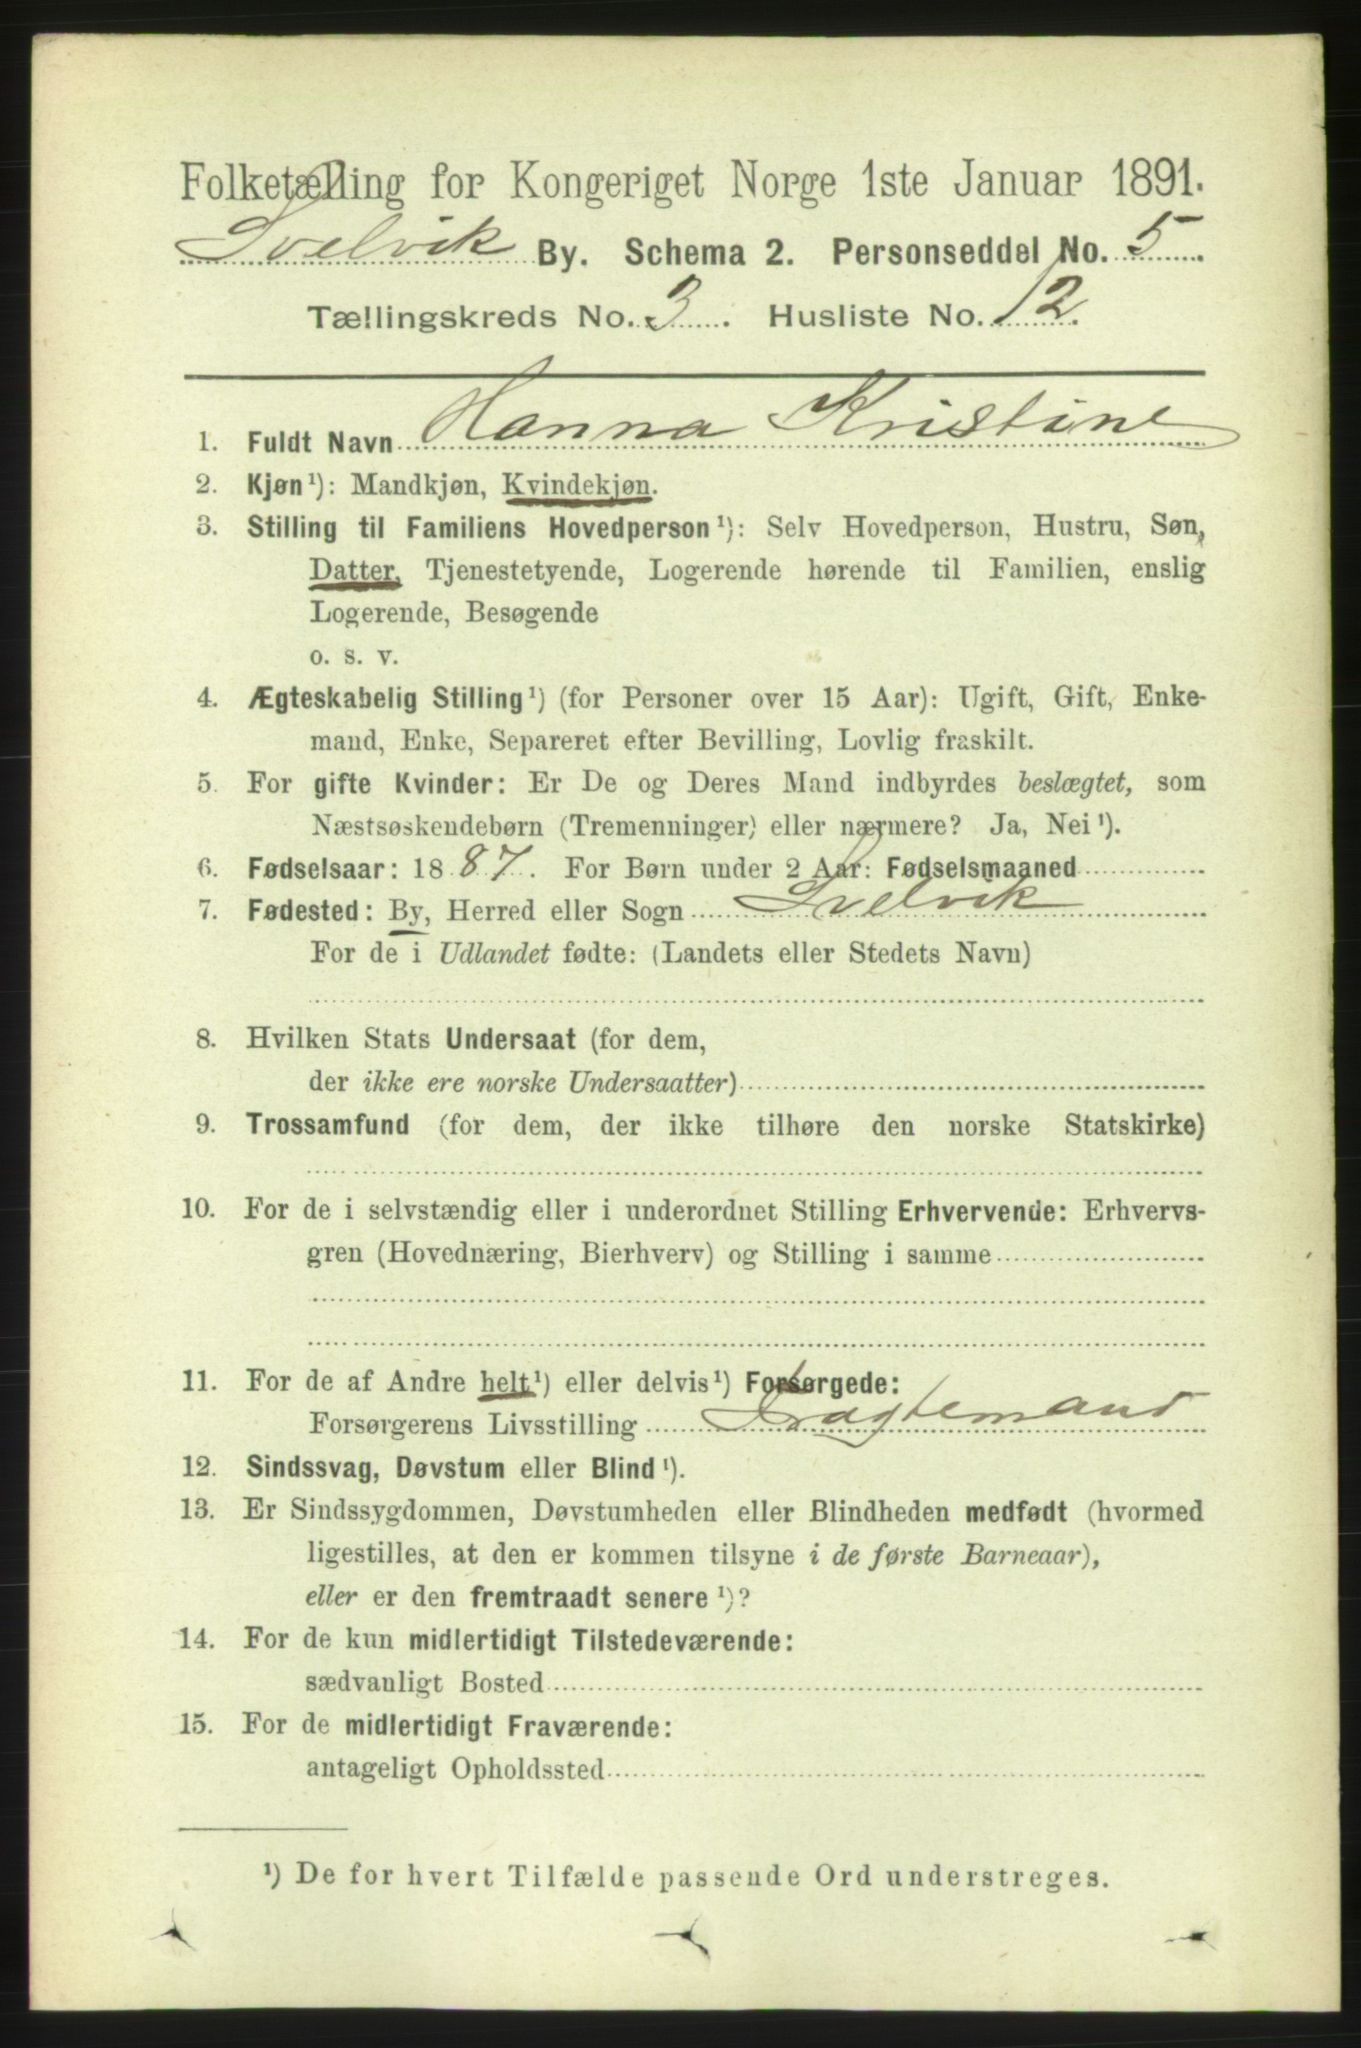 Folketælling for Kongeriget Norge 1ste Januar 1891.
Svelvik By. Schema 2. Personseddel No. 5
Tællingskreds No. 3. Husliste No. 12.
1. Fuldt Navn Hanna Kristine
2. Kjøn¹): Mandkjøn, Kvindekjøn.
3. Stilling til Familiens Hovedperson¹): Selv Hovedperson, Hustru, Søn,
Datter, Tjenestetyende, Logerende hørende til Familien, enslig
Logerende, Besøgende
o. s. v.
4. Ægteskabelig Stilling¹) (for Personer over 15 Aar): Ugift, Gift, Enke-
mand, Enke, Separeret efter Bevilling, Lovlig fraskilt.
5. For gifte Kvinder: Er De og Deres Mand indbyrdes beslægtet, som
Næstsøskendebørn (Tremenninger) eller nærmere? Ja, Nei¹).
6. Fødselsaar: 1887. For Børn under 2 Aar: Fødselsmaaned
7. Fødested: By, Herred eller Sogn Svelvik
For de i Udlandet fødte: (Landets eller Stedets Navn)
8. Hvilken Stats Undersaat (for dem,
der ikke ere norske Undersaatter)
9. Trossamfund (for dem, der ikke tilhøre den norske Statskirke)
10. For de i selvstændig eller i underordnet Stilling Erhvervende: Erhvervs-
gren (Hovednæring, Bierhverv) og Stilling i samme
11. For de af Andre helt¹) eller delvis¹) Forsørgede:
Forsørgerens Livsstilling Fragtemand
12. Sindssvag, Døvstum eller Blind¹).
13. Er Sindssygdommen, Døvstumheden eller Blindheden medfødt (hvormed
ligestilles, at den er kommen tilsyne i de første Barneaar),
eller er den fremtraadt senere¹)?
14. For de kun midlertidigt Tilstedeværende:
sædvanligt Bosted
15. For de midlertidigt Fraværende:
antageligt Opholdssted
¹) De for hvert Tilfælde passende Ord understreges.